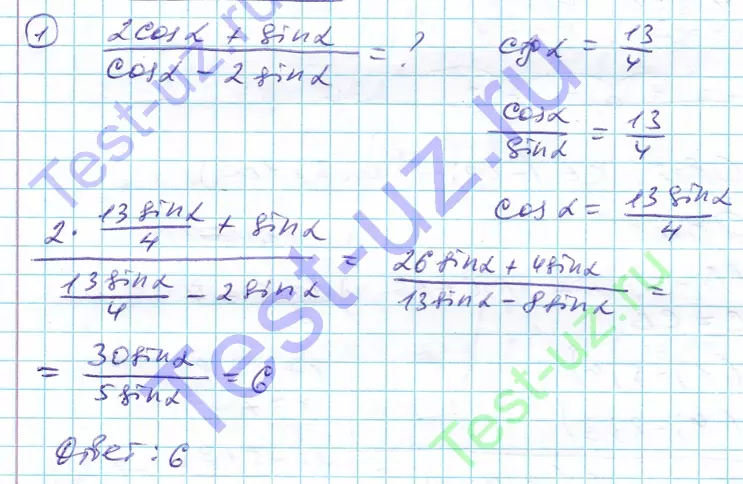 1 (2cosα + sinα)/(cosα - 2sinα) = ? ctgα = 13/4
cosα/sinα = 13/4
cosα = 13sinα/4
(2 · 13sinα/4 + sinα)/(13sinα/4 - 2sinα) = (26sinα + 4sinα)/(13sinα - 8sinα) =
= 30sinα/5sinα = 6
Ответ: 6
Test-uz.ru
Test-uz.ru
Test-uz.ru